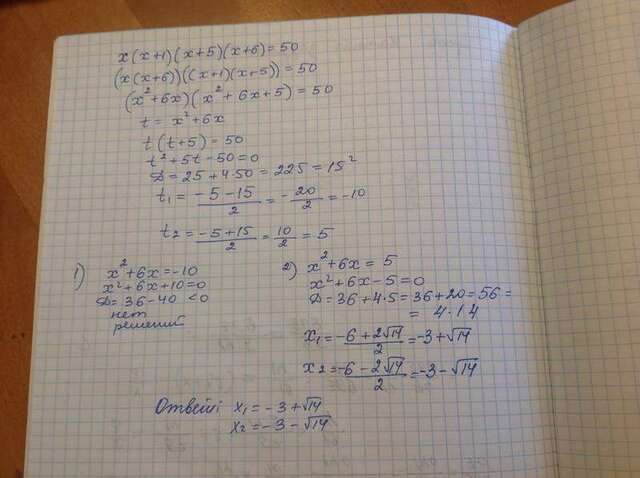 x(x+1)(x+5)(x+6)=50
(x(x+6))((x+1)(x+5))=50
(x²+6x)(x²+6x+5)=50
t = x²+6x
t(t+5)=50
t²+5t-50=0
D=25+450=225=15²
t₁= (-5-15)/2 = -20/2 = -10
t₂= (-5+15)/2 = 10/2 = 5
1) x²+6x=-10
x²+6x+10=0
D=36-40<0
нет
решений
2) x²+6x=5
x²+6x-5=0
D=36+4·5=36+20=56=
= 4·14
x₁= (-6+2√14)/2 = -3+√14
x₂= (-6-2√14)/2 = -3-√14
Ответ: x₁=-3+√14
x₂=-3-√14